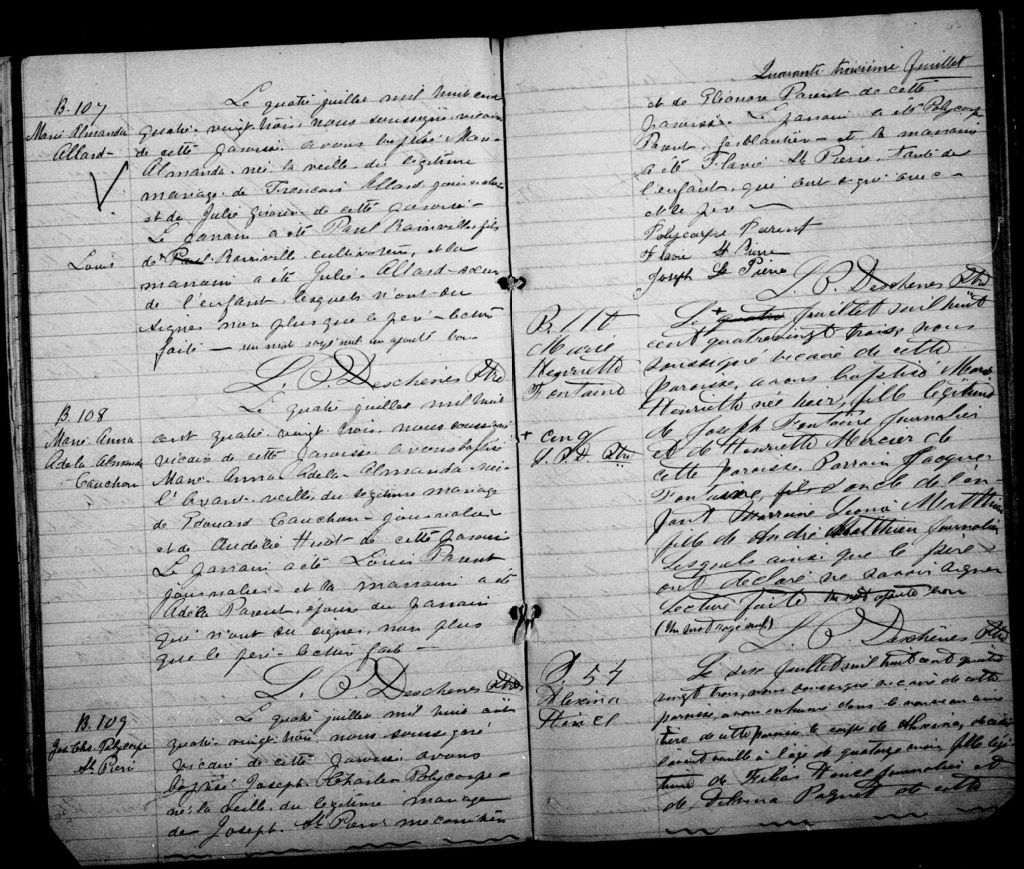 B. 107
Marie Almanda
Allard
Louis
Le quatre juillet mil huit cent
quatre-vingt trois, nous soussigné, vicaire
de cette paroisse avons baptisé Marie
Almanda née la veille du légitime
mariage de François Allard, journalier
et de Julie Giroux de cette paroisse
Le parrain a été Paul Rainville fils
de Paul Rainville cultivateur, et la
marraine a été Julie Allard sœur
de l'enfant, lesquels n'ont su
signer non plus que le père - lecture
faite - un mot rayé nul un ajouté bon
L. P. Deschênes Ptre
B. 108
Marie Anna
Adela Almanda
Cauchon
Le quatre juillet mil huit
cent quatre-vingt trois, nous soussigné
vicaire de cette paroisse avons baptisé
Marie Anna Adela Almanda née
l'avant-veille du légitime mariage
de Edouard Cauchon journalier
et de Audélie Huot de cette paroisse
Le parrain a été Louis Parent
journalier et la marraine a été
Adela Parent, épouse du parrain
qui n'ont su signer, non plus
que le père - lecture faite -
L. P. Deschênes Ptre
B. 109
Jos. Chs. Polycarpe
St Pierre
Le quatre juillet mil huit cent
quatre-vingt trois, nous soussigné
vicaire de cette paroisse avons
baptisé Joseph Charles Polycarpe
né la veille du légitime mariage
de Joseph St Pierre mécanicien
Quarante troisième feuillet
et de Eléonore Parent de cette
paroisse. Le parrain a été Polycarpe
Parent, ferblantier et la marraine
a été Flavie St Pierre, tante de
l'enfant, qui ont signé avec
et le père
Polycarpe Parent
Flavie St Pierre
Joseph St Pierre
L. P. Deschênes Ptre
B. 110
Marie
Henriette
Fontaine
+ cinq
L. P. D. Ptre
Le + quatre juillet mil huit
cent quatre vingt trois, nous
soussigné vicaire de cette
paroisse, avons baptisé Marie
Henriette née hier, fille légitime
de Joseph Fontaine journalier
et de Henriette Mercier de
cette paroisse. Parrain Jacques
Fontaine, fils oncle de l'en-
fant Marraine Matthieu
fille de André Matthieu journalier
lesquels ainsi que le père
ont déclaré ne savoir signer
Lecture faite Un mot ajouté bon
(Un mot rayé nul)
L. P. Deschênes Ptre
S. 54
Alexina
Hamel
Le six juillet mil huit cent quatre
vingt trois, nous soussigné vicaire de cette
paroisse, avons inhumé dans le nouveau cime-
tière de cette paroisse le corps de Alexina, décédée
l'avant veille à l'âge de quatorze mois, fille légi-
time de Hamel journalier et
de Delvina Paquet de cette